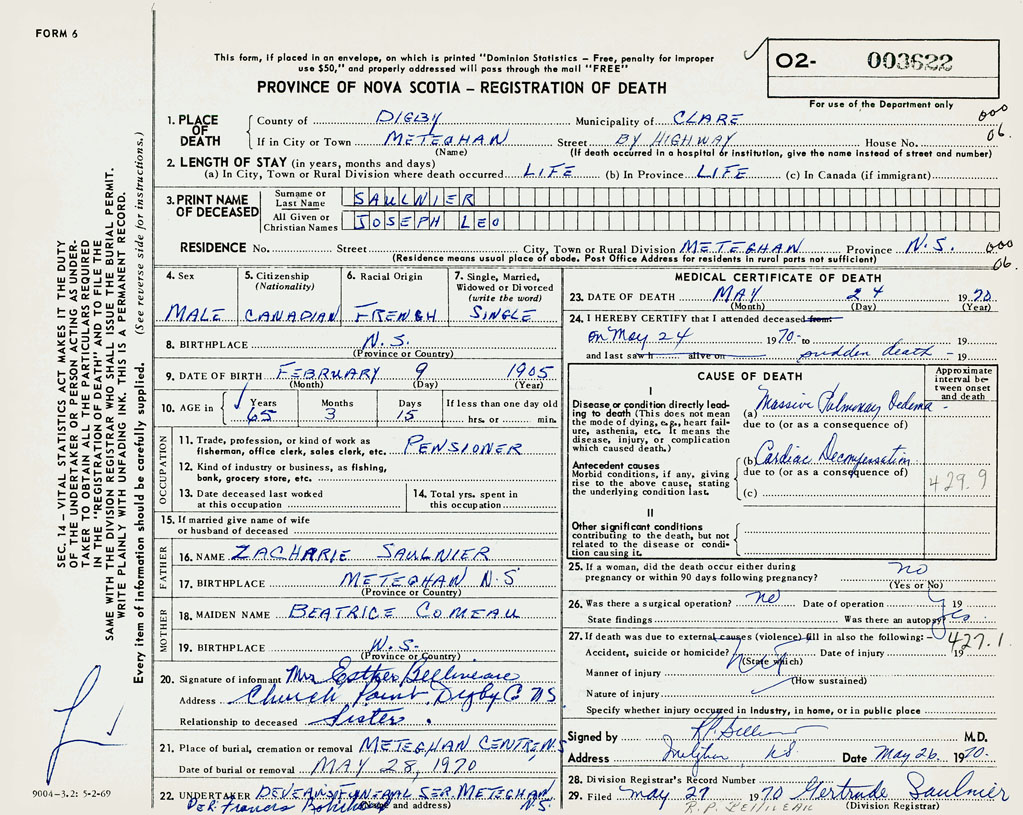 FORM 6
This form, if placed in an envelope, on which is printed "Dominion Statistics – Free, penalty for improper
use $50," and properly addressed will pass through the mail "FREE"
02- 003622
For use of the Department only
PROVINCE OF NOVA SCOTIA – REGISTRATION OF DEATH
000
06.
1. PLACE OF DEATH
County of DIGBY Municipality of CLARE
If in City or Town METEGHAN Street BY HIGHWAY House No.
(Name) (If death occurred in a hospital or institution, give the name instead of street and number)
2. LENGTH OF STAY (in years, months and days)
(a) In City, Town or Rural Division where death occurred LIFE (b) In Province LIFE (c) In Canada (if immigrant)
3. PRINT NAME OF DECEASED
Surname or Last Name SAULNIER
All Given or Christian Names JOSEPH LEO
RESIDENCE No. Street City, Town or Rural Division METEGHAN Province N.S. 000
(Residence means usual place of abode. Post Office Address for residents in rural parts not sufficient) 06.
4. Sex 5. Citizenship (Nationality) 6. Racial Origin 7. Single, Married, Widowed or Divorced (write the word)
MALE CANADIAN FRENCH SINGLE
8. BIRTHPLACE N.S.
(Province or Country)
9. DATE OF BIRTH FEBRUARY 9 1905
(Month) (Day) (Year)
10. AGE in Years Months Days If less than one day old
65 3 15 hrs. or min.
OCCUPATION
11. Trade, profession, or kind of work as
fisherman, office clerk, sales clerk, etc. PENSIONER
12. Kind of industry or business, as fishing,
bank, grocery store, etc.
13. Date deceased last worked at this occupation
14. Total yrs. spent in this occupation
15. If married give name of wife
or husband of deceased
FATHER
16. NAME ZACHARIE SAULNIER
17. BIRTHPLACE METEGHAN N.S
(Province or Country)
MOTHER
18. MAIDEN NAME BEATRICE COMEAU
19. BIRTHPLACE N.S.
(Province or Country)
20. Signature of informant Mrs Esther Belliveau
Address Church Point Digby Co NS
Relationship to deceased Sister.
21. Place of burial, cremation or removal METEGHAN CENTRE N.S
Date of burial or removal MAY 28, 1970
22. UNDERTAKER FUNERAL SER. METEGHAN
(Name and address) N.S.
Per. Francis
MEDICAL CERTIFICATE OF DEATH
23. DATE OF DEATH MAY 24 1970
(Month) (Day) (Year)
24. I HEREBY CERTIFY that I attended deceased from:
on May 24 1970 to 19
and last saw h alive on sudden death – 19
CAUSE OF DEATH
Approximate interval between onset and death
I
Disease or condition directly leading to death (This does not mean
the mode of dying, e.g., heart failure, asthenia, etc. It means the
disease, injury, or complication
which caused death.)
(a) Massive Pulmonary Oedema
due to (or as a consequence of)
Antecedent causes
Morbid conditions, if any, giving
rise to the above cause, stating
the underlying condition last.
(b) Cardiac Decompensation
due to (or as a consequence of)
(c)
429.9
II
Other significant conditions
contributing to the death, but not
related to the disease or condition causing it.
25. If a woman, did the death occur either during
pregnancy or within 90 days following pregnancy? no
(Yes or No)
26. Was there a surgical operation? no Date of operation 19
State findings Was there an autopsy yes
27. If death was due to external causes (violence) fill in also the following: 427.1
Accident, suicide or homicide? Date of injury 19
(State which)
Manner of injury
(How sustained)
Nature of injury
Specify whether injury occurred in Industry, in home, or in public place
Signed by M.D.
Address NS Date May 26 1970
28. Division Registrar's Record Number
29. Filed May 27 1970 Gertrude Saulnier
(Division Registrar)
R.P. BELLIVEAU
SEC. 14 – VITAL STATISTICS ACT MAKES IT THE DUTY
OF THE UNDERTAKER OR PERSON ACTING AS UNDERTAKER TO OBTAIN ALL THE PARTICULARS REQUIRED
IN THE "REGISTRATION OF DEATH" AND TO FILE THE
SAME WITH THE DIVISION REGISTRAR WHO SHALL ISSUE THE BURIAL PERMIT.
WRITE PLAINLY WITH UNFADING INK. THIS IS A PERMANENT RECORD.
Every item of information should be carefully supplied. (See reverse side for instructions.)
9004-3.2: 5-2-69